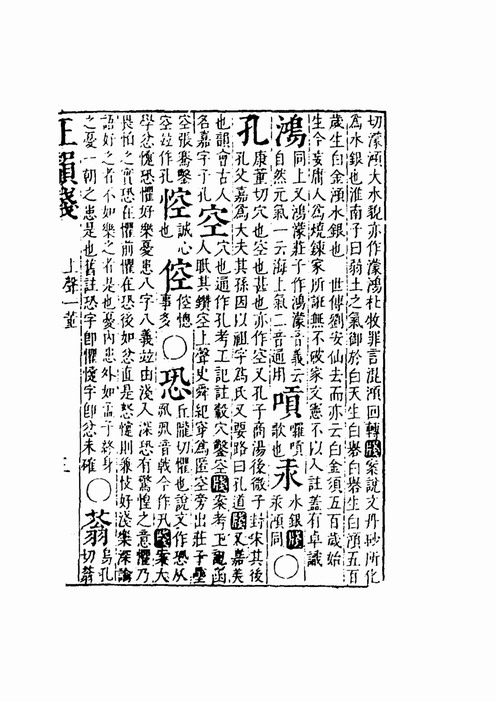 切濛澒大水貌亦作濛鴻杜牧罪言混澒回轉牋案說文丹砂所化
為水銀也淮南子曰弱土之氣御於白天生白礜白礜生白澒五百
歲生白金澒水銀也 世傳劉安仙去而亦云白金須五百歲始
生今妄庸人為燒鍊家所誑無不破家文憲不以入註蓋有卓識
鴻同上又鴻蒙莊子作鴻濛音義云自然元氣一云海上氣一音通用嗊囉嗊歌也汞水銀牋汞澒同○
孔康董切穴也空也甚也亦作空又孔子商湯後微子封宋其後孔父嘉為大夫其孫因以祖字為氏又要路曰孔道牋又嘉美
也韻會古人名嘉字子孔空穴也通作孔考工記註轂穴鑿空牋案考工記函人眡其鑽空上聲史舜紀穿為匿空旁出莊子壘
空張騫鑿空竝作孔悾誠心也倥倥傯事多○恐丘隴切懼也說文作恐从巩巩音戟今作卂牋案大
學忿懥恐懼好樂憂患八字八義竝由淺入深恐有驚惶之意懼乃
畏怕之實恐在懼前懼在恐後如忿直是怒懥則兼忮好淺樂深論
語好之者不如樂之者是也憂內患外如孟子終身
之憂一朝之患是也舊註恐字即懼懥字即忿未確○蓊烏孔切蓊
正韻牋 上聲一董